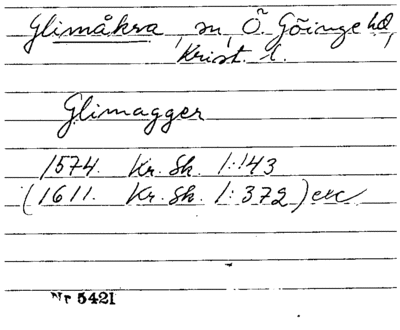 Glimåkra, sn, Ö. Göinge hd,
Krist. l.
Glimagger
1574. Kr. Sk. 1:143
(1611. Kr. Sk. 1:372) etc
Nr 5421